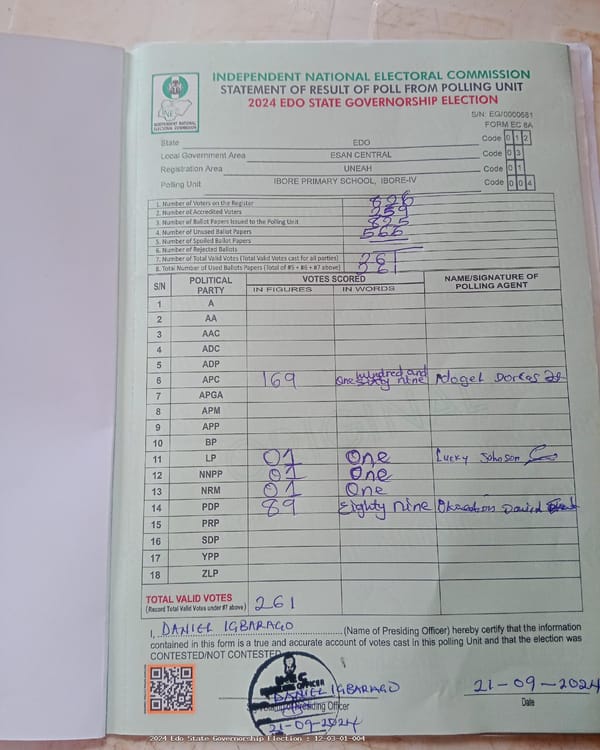 INDEPENDENT NATIONAL ELECTORAL COMMISSION
STATEMENT OF RESULT OF POLL FROM POLLING UNIT
2024 EDO STATE GOVERNORSHIP ELECTION
INDEPENDENT NATIONAL ELECTORAL COMMISSION
S/N: EG/0000681
FORM EC 8A
State EDO Code 0 1 2
Local Government Area ESAN CENTRAL Code 0 3
Registration Area UNEAH Code 0 1
Polling Unit IBORE PRIMARY SCHOOL, IBORE-IV Code 0 0 4
1. Number of Voters on the Register 826
2. Number of Accredited Voters 259
3. Number of Ballot Papers Issued to the Polling Unit
4. Number of Unused Ballot Papers
5. Number of Spoiled Ballot Papers
6. Number of Rejected Ballots
7. Number of Total Valid Votes (Total Valid Votes cast for all parties) 261
8. Total Number of Used Ballots Papers (Total of #5 + #6 + #7 above) 261
S/N POLITICAL PARTY VOTES SCORED NAME/SIGNATURE OF POLLING AGENT
IN FIGURES IN WORDS
1 A
2 AA
3 AAC
4 ADC
5 ADP
6 APC 169 One hundred and sixty nine Adogel Dorcas
7 APGA
8 APM
9 APP
10 BP
11 LP 01 One Lucky Johnson
12 NNPP 01 One
13 NRM 01 One
14 PDP 89 Eighty nine David
15 PRP
16 SDP
17 YPP
18 ZLP
TOTAL VALID VOTES
(Record Total Valid Votes under #7 above) 261
I, DANIEL IGBARAGO (Name of Presiding Officer) hereby certify that the information
contained in this form is a true and accurate account of votes cast in this polling Unit and that the election was
CONTESTED/NOT CONTESTED
DANIEL IGBARAGO
21-09-2024
Presiding Officer
Date
21-09-2024
2024 Edo State Governorship Election : 12-03-01-004